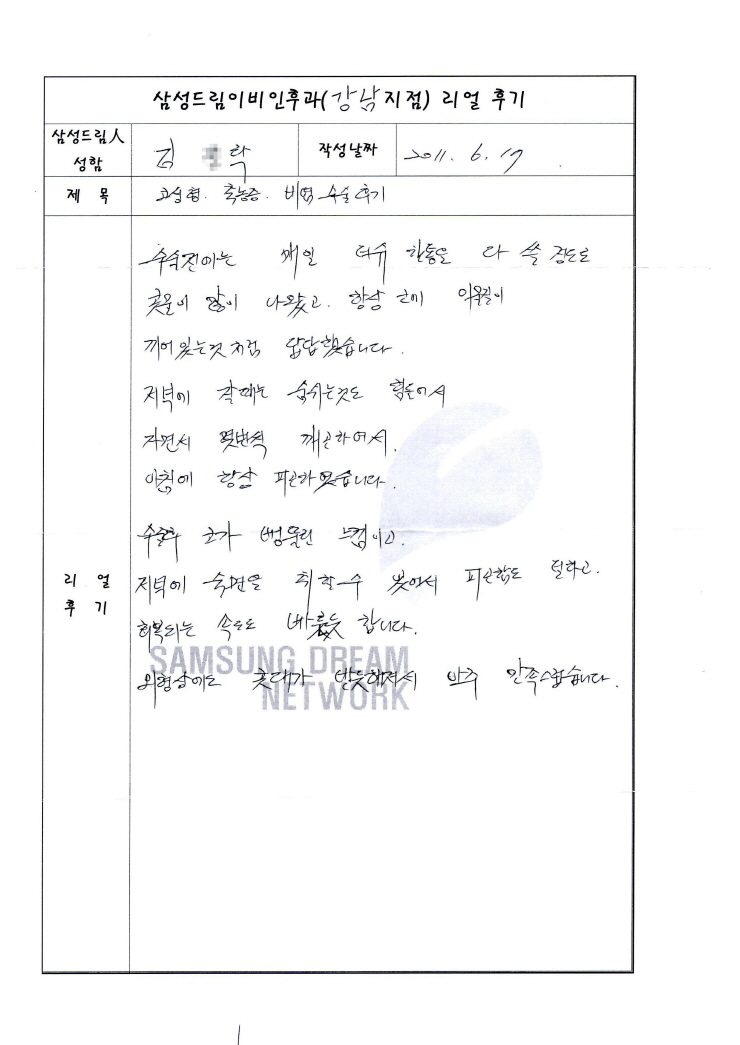 삼성드림이비인후과(강남지점) 리얼 후기
삼성드림人 성함
김 락
작성날짜
2011. 6. 17
제 목
코성형. 축농증. 비염 수술후기
수술전에는 매일 티슈 한통을 다 쓸 정도로
콧물이 많이 나왔고. 항상 코에 이물질이
끼어 있는것 처럼 답답했습니다.
저녁에 잘때는 숨쉬는것도 힘들어서
자면서 몇번씩 깨곤하여서.
아침에 항상 피곤하였습니다.
수술후 코가 뻥뚫린 느낌이고.
저녁에 숙면을 취할수 있어서 피곤함도 덜하고.
회복되는 속도도 빠른듯 합니다.
외형상에도 콧대가 반듯해져서 아주 만족스럽습니다.
리 얼
후 기
SAMSUNG DREAM
NETWORK